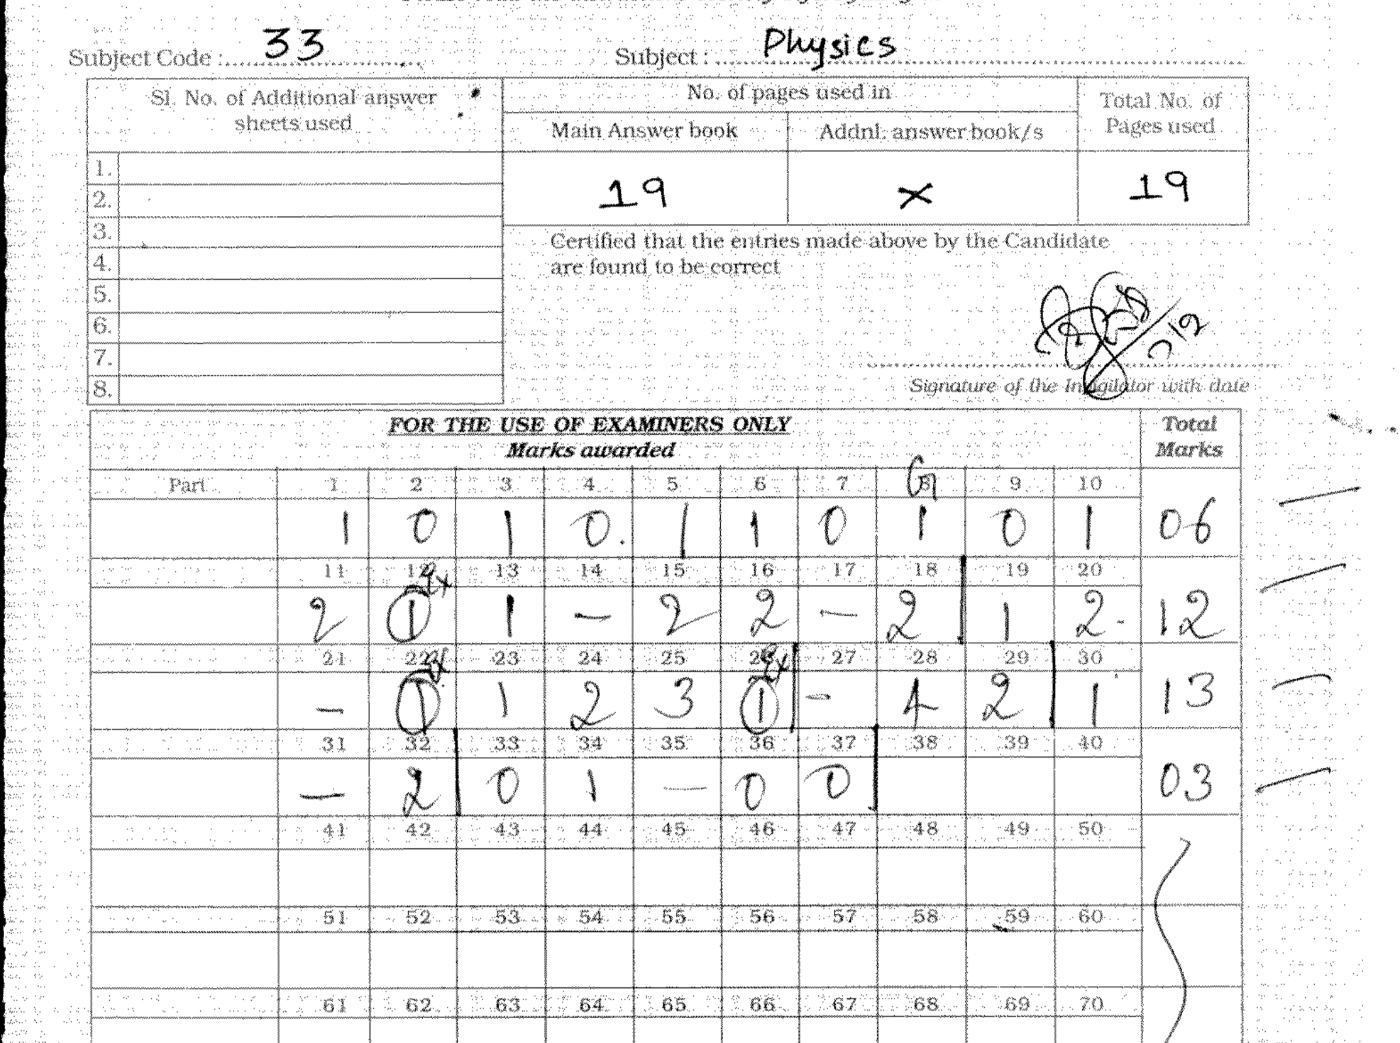 Subject Code : 33 Subject : Physics
Sl. No. of Additional answer sheets used
No. of pages used in
Main Answer book Addnl. answer book/s
Total No. of Pages used
1.
2.
3.
4.
5.
6.
7.
8.
19 x 19
Certified that the entries made above by the Candidate
are found to be correct
Signature of the Invigilator with date
FOR THE USE OF EXAMINERS ONLY
Marks awarded
Total Marks
Part 1 2 3 4 5 6 7 8 9 10
1 0 1 0. 1 1 0 1 0 1 06
11 12 13 14 15 16 17 18 19 20
2 1 1 - 2 2 - 2 1 2. 12
21 22 23 24 25 26 27 28 29 30
- 1 1 2 3 1 - 4 2 1 13
31 32 33 34 35 36 37 38 39 40
- 2 0 1 - 0 0 03
41 42 43 44 45 46 47 48 49 50
51 52 53 54 55 56 57 58 59 60
61 62 63 64 65 66 67 68 69 70